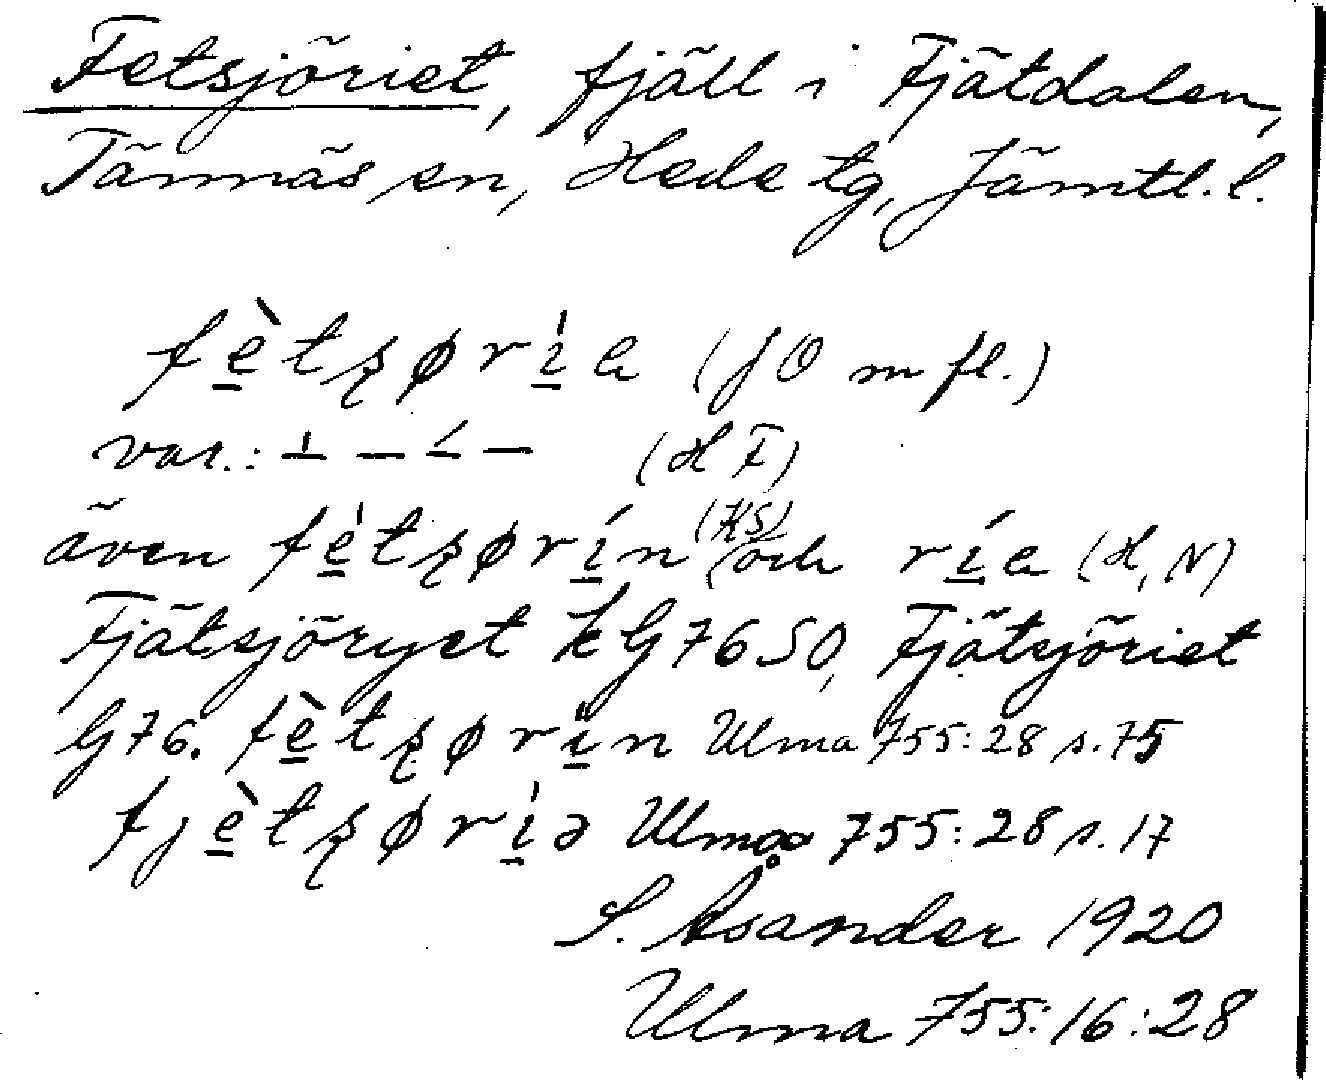 Fetsjöriet, fjäll i Fjätdalen,
Tännäs sn, Hede tg, Jämtl. l.
fè̱tʂøri̱̍a (JO m fl.)
var.: ⊥ – ∠ – (H F)
även fe̱̍tʂørí̱n (KS) och rí̱a (H, N)
Fjätsjöryet kG7650, Fjätsjöriet
G76. fè̱tʂøri̱̎n Ulma 755:28 s. 75
fjè̱tʂøri̱̍ə Ulma 755:28 s. 17
S. Åsander 1920
Ulma 755:16:28